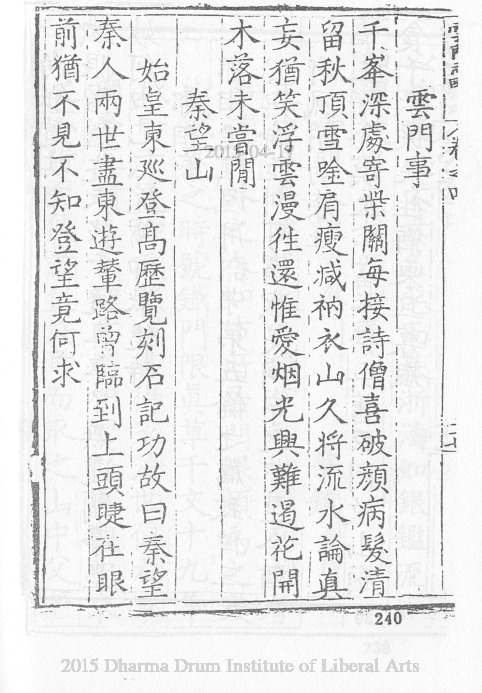 雲門事
千峯深處寄柴關每接詩僧喜破顏病髮清
留秋頂雪吟肩瘦減衲衣山久將流水論真
妄猶笑浮雲漫往還惟愛烟光興難遏花開
木落未嘗閒
秦望山
始皇東廵登高歷覽刻石記功故曰秦望
秦人兩世盡東遊輦路曾臨到上頭睫在眼
前猶不見不知登望竟何求
240
2015 Dharma Drum Institute of Liberal Arts